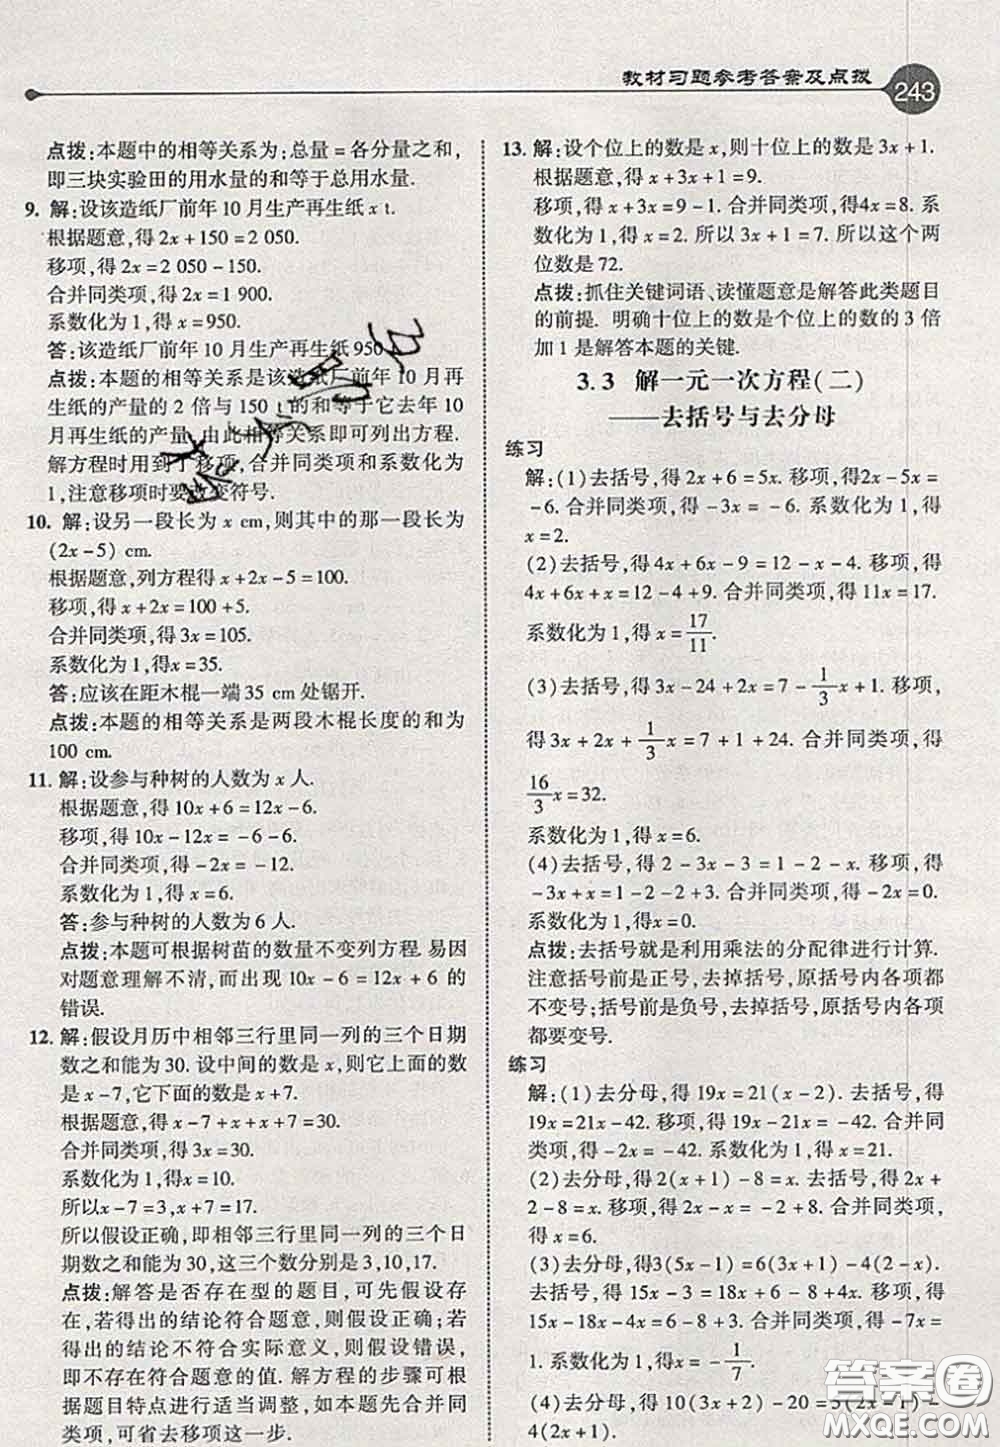 教材习题参考答案及点拨
243
点拨:本题中的相等关系为:总量=各分量之和,
即三块实验田的用水量的和等于总用水量.
9. 解:设该造纸厂前年 10 月生产再生纸 x t.
根据题意,得 2x+150=2 050.
移项,得 2x=2 050-150.
合并同类项,得 2x=1 900.
系数化为 1,得 x=950.
答:该造纸厂前年 10 月生产再生纸 950
点拨:本题的相等关系是该造纸厂前年 10 月再
生纸的产量的 2 倍与 150 t 的和等于它去年 10
月再生纸的产量,由此相等关系即可列出方程.
解方程时用到了移项,合并同类项和系数化为
1,注意移项时要改变符号.
10. 解:设另一段长为 x cm,则其中的那一段长为
(2x-5) cm.
根据题意,列方程得 x+2x-5=100.
移项,得 x+2x=100+5.
合并同类项,得 3x=105.
系数化为 1,得x=35.
答:应该在距木棍一端 35 cm 处锯开.
点拨:本题的相等关系是两段木棍长度的和为
100 cm.
11. 解:设参与种树的人数为 x 人.
根据题意,得 10x+6=12x-6.
移项,得 10x-12x=-6-6.
合并同类项,得 -2x=-12.
系数化为 1,得 x=6.
答:参与种树的人数为 6 人.
点拨:本题可根据树苗的数量不变列方程.易因
对题意理解不清,而出现 10x-6=12x+6 的
错误.
12. 解:假设月历中相邻三行里同一列的三个日期
数之和能为 30. 设中间的数是 x,则它上面的数
是 x-7,它下面的数是 x+7.
根据题意,得 x-7+x+x+7=30.
合并同类项,得 3x=30.
系数化为 1,得x=10.
所以x-7=3,x+7=17.
所以假设正确,即相邻三行里同一列的三个日
期数之和能为 30,这三个数分别是 3,10,17.
点拨:解答是否存在型的题目,可先假设存
在,若得出的结论符合题意,则假设正确;若
得出的结论不符合实际意义,则假设错误,
即不存在符合题意的值. 解方程的步骤可根据
题目特点进行适当调整,如本题先合并同
类项,可省去移项这一步.
13. 解:设个位上的数是 x,则十位上的数是 3x+1.
根据题意,得 x+3x+1=9.
移项,得 x+3x=9-1. 合并同类项,得4x=8. 系
数化为 1,得 x=2. 所以 3x+1=7. 所以这个两
位数是 72.
点拨:抓住关键词语、读懂题意是解答此类题目
的前提. 明确十位上的数是个位上的数的 3 倍
加 1 是解答本题的关键.
3.3 解一元一次方程(二)
——去括号与去分母
练习
解:(1)去括号,得 2x+6=5x. 移项,得 2x-5x=
-6. 合并同类项,得 -3x=-6. 系数化为 1,得
x=2.
(2)去括号,得 4x+6x-9=12-x-4. 移项,得
4x+6x+x=12-4+9. 合并同类项,得 11x=17.
系数化为 1,得 x=17/11.
(3)去括号,得 3x-24+2x=7-1/3x+1. 移项,
得 3x+2x+1/3x=7+1+24. 合并同类项,得
16/3x=32.
系数化为 1,得 x=6.
(4)去括号,得 2-3x-3=1-2-x. 移项,得
-3x+x=1-2-2+3. 合并同类项,得-2x=0.
系数化为 1,得 x=0.
点拨:去括号就是利用乘法的分配律进行计算.
注意括号前是正号,去掉括号,原括号内各项都
不变号;括号前是负号,去掉括号,原括号内各项
都要变号.
练习
解:(1)去分母,得 19x=21(x-2). 去括号,得
19x=21x-42. 移项,得 19x-21x=-42. 合并同
类项,得 -2x=-42. 系数化为 1,得x=21.
(2)去分母,得2(x+1)-8=x. 去括号,得 2x+
2-8=x. 移项,得 2x-x=-2+8. 合并同类项,得
x=6.
(3)去分母,得 3(5x-1)=6(3x+1)-
2(4-x). 去括号,得15x-3=18x+6-8+2x. 移项,得
15x-18x-2x=6-8+3. 合并同类项,得-5x=
1. 系数化为 1,得x=-1/7.
(4)去分母,得 10(3x+2)-20=
4(2x+1).
答案圈
MXQE.COM